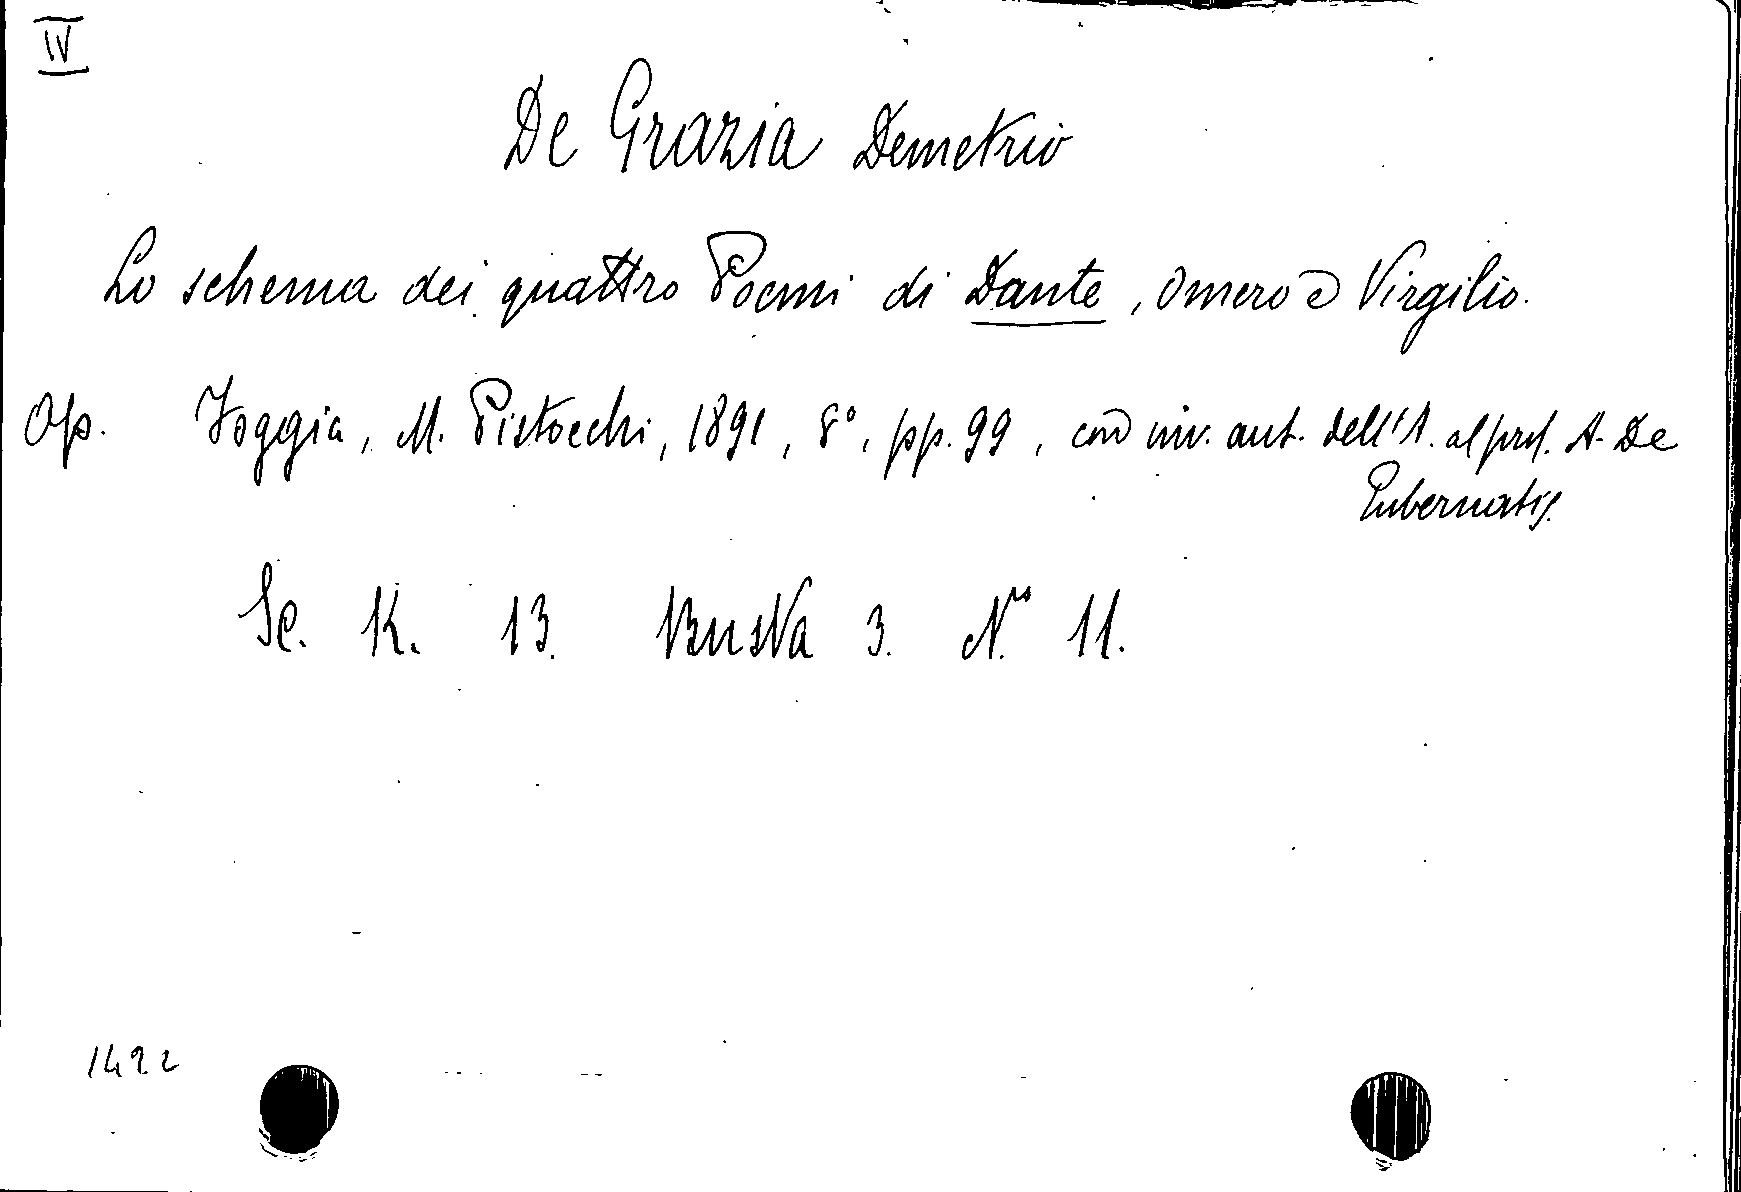 IV
De Grazia Demetrio
Lo schema dei quattro Poemi di Dante, Omero e Virgilio.
Op. Foggia, M. Pistocchi, 1891, 8°, pp. 99, con inv. aut. dell'A. al prof. A. De
Gubernatis.
Sc. K. 13. Busta 3. N.ro 11.
1492